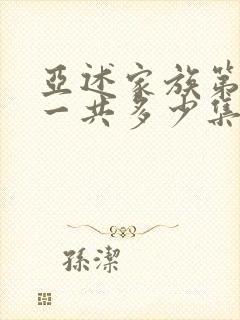 亞述家族第
一共多少集
孫潔